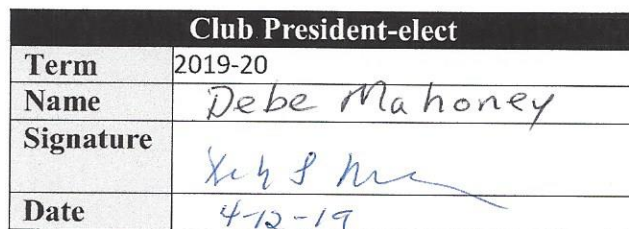 Club President-elect
Term 2019-20
Name Debe Mahoney
Signature
Date 4-12-19